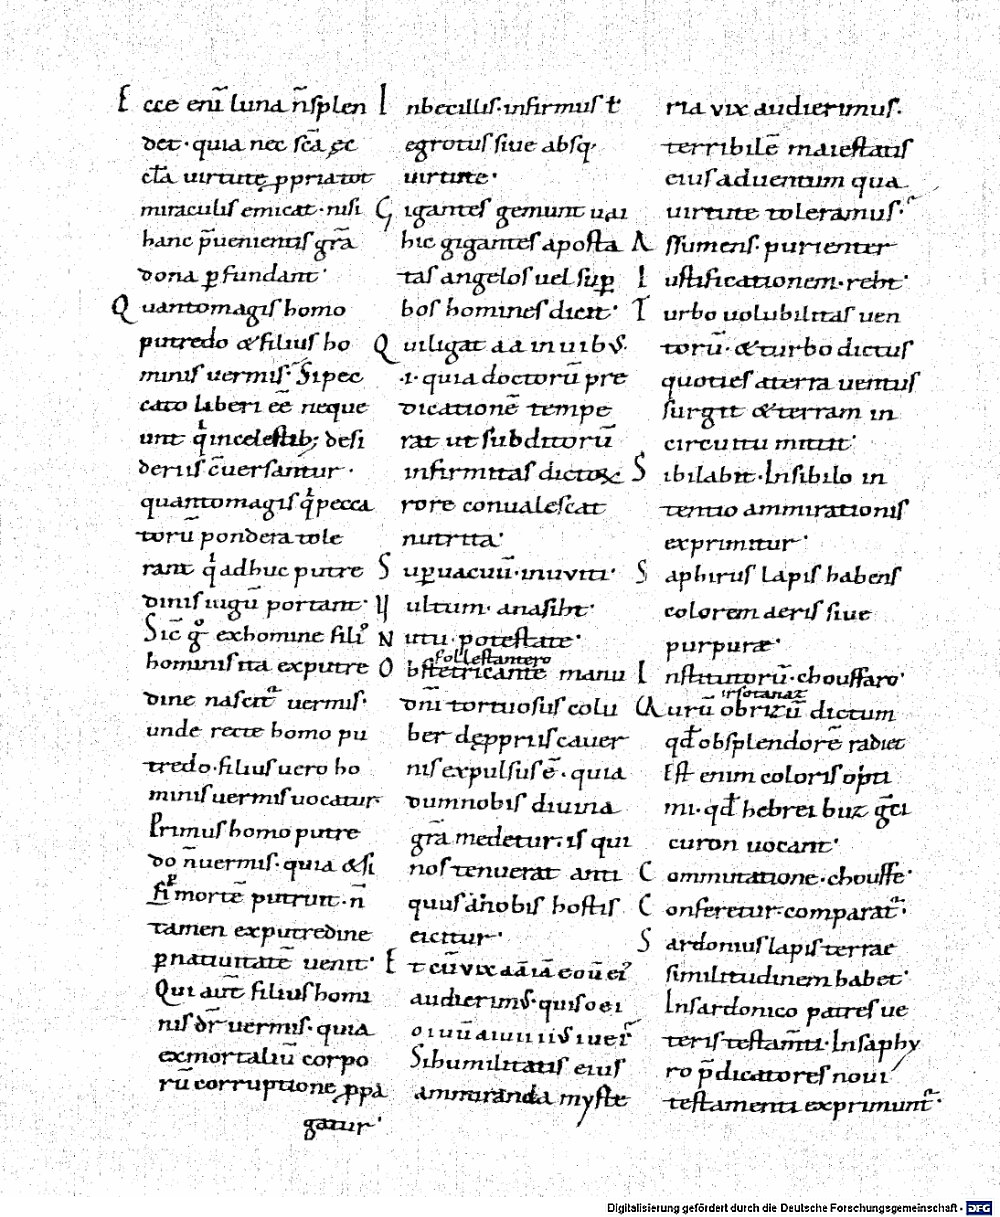 Ecce eni̅ luna n̅ splen
det · quia nec sc̅a ęc
cl̅a uirtute ꝓpria tot
miraculis emicat · nisi
hanc p̅uenientis gr̅a
dona ꝑfundant ·
Quantomagis homo
putredo & filius ho
minis uermis · Si pec
cato liberi ee̅ neque
unt qͥ in celestib; desi
deriis c̅uersantur ·
quantomagis qͥ pecca
toru̅ pondera tole
rant qͥ adhuc putre
dinis iugu̅ portant ·
Sic̅ gͦ ex homine fili᷒
hominis ita ex putre
dine nascit᷒ uermis ·
unde recte homo pu
tredo · filius uero ho
minis uermis uocatur
Primus homo putre
do n̅ uermis · quia & si
morte̅ putruit · n̅
tamen ex putredine
ꝑ natiuitate̅ uenit ·
Qui aut̅ filius homi
nis dr̅ uermis · quia
ex mortaliu̅ corpo
ru̅ corruptione ꝓpa
gatur ·
Inbecillis · infirmus ł
egrotus siue absq·
uirtute ·
Gigantes gemunt
hic gigantes aposta
tas angelos uel suꝑ
bos homines dicit ·
Qui ligat in nubib᷒ ·
·i· quia doctoru̅ pre
dicatione̅ tempe
rat ut subditoru̅
infirmitas dictoꝝ
rore conualescat
nutrita ·
Suꝑuacuu̅ · inuviti ·
Vultum · anasiht ·
Nutu · potestate ·
follestantero
Obstetricante manu
dn̅i tortuosus colu
ber de ppriis cauer
nis expulsus e̅ · quia
dum nobis diuina
gr̅a medetur · is qui
nos tenuerat anti
quus a̅ nobis hostis
eicitur ·
Et cu̅ vix
audierim᷒ ·
Si humilitatis eius
ammiranda myste
ria vix audierimus ·
terribile̅ maiestatis
eius aduentum qua
uirtute toleramus ·
Assumens · purienter
Iustificationem · reht ·
Turbo uolubilitas uen
toru̅ · & turbo dictus
quoties a terra uentus
surgit & terram in
circuitu mittit ·
Sibilabit · In sibilo in
tentio ammirationis
exprimitur ·
Saphirus lapis habens
colorem aeris siue
purpuræ ·
Institutoru̅ · chouffaro ·
irsotanaz
Auru̅ obrizu̅ dictum
qđ obsplendore̅ radiet
Est enim coloris opti
mi · qđ hebrei buz g̅ci
curon uocant ·
Commutatione · chouffe ·
Conferetur · comparat᷒ ·
Sardonius lapis terrae
similitudinem habet ·
In sardonico patres ue
teris testam̅ti · In saphy
ro p̅dicatores noui
testamenti exprimunt᷒ ·
Digitalisierung gefördert durch die Deutsche Forschungsgemeinschaft - DFG